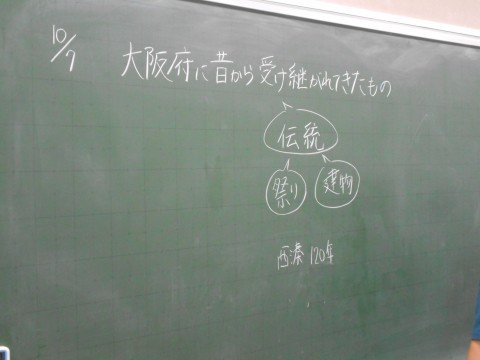 10/7
大阪府に昔から受け継がれてきたもの
伝統
祭り 建物
西湊 120年